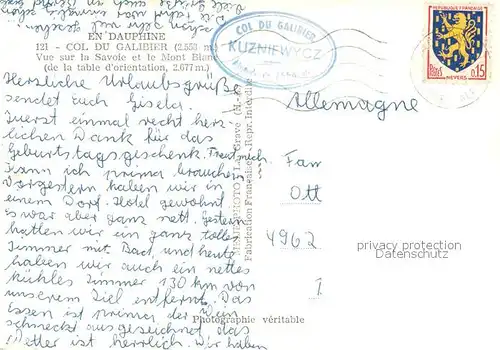 EN DAUPHINE
121 - COL DU GALIBIER (2.553 m.)
Vue sur la Savoie et le Mont Blanc
(de la table d'orientation, 2.677 m.)
COL DU GALIBIER
KUZNIEWYCZ
REPUBLIQUE FRANÇAISE
POSTES
0,15
NEVERS
Herzliche Urlaubsgrüße
sendet Euch Gisela.
Zuerst einmal recht herz-
lichen Dank für das
Geburtstagsgeschenk. Freut mich.
Kann ich prima brauchen.
Vorgestern haben wir in
einem Dorf-Hotel gewohnt.
Es war aber ganz nett. Gestern
hatten wir ein ganz tolles
Zimmer mit Bad, und heute
haben wir auch ein nettes
kühles Zimmer 130 km von
unserem Ziel entfernt. Das
Essen ist prima der Wein
schmeckt ausgezeichnet das
Wetter ist herrlich. Wir haben
La Grave (H.-
Fabrication Française. Repr. Interdite
Photographie véritable
Allemagne
Fam
Ott
4962
privacy protection
Datenschutz